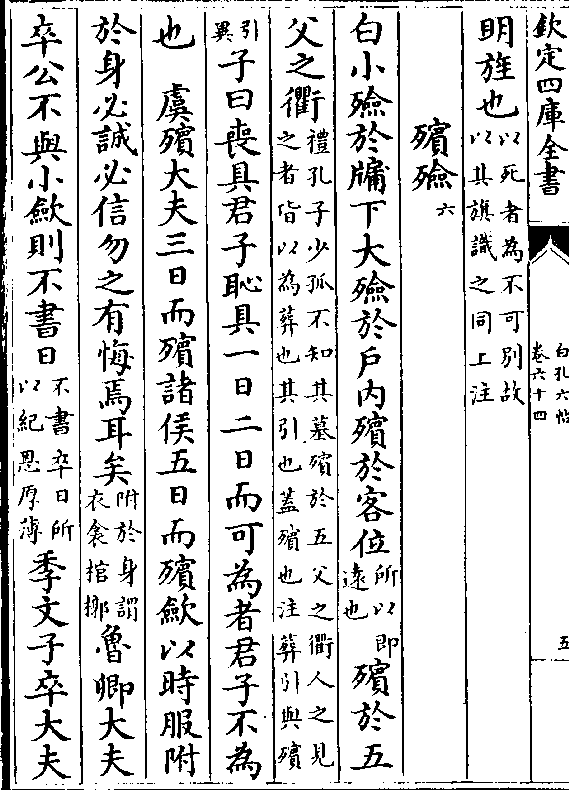 欽定四庫全書
白孔六帖
卷六十四
五
明旌也以死者為不可别故
以其旗識之同上注
殯殮六
白小殮於牖下大殮於戶内殯於客位所以即
遠也殯於五
父之衢禮孔子少孤不知其墓殯於五父之衢人之見
之者皆以為葬也其引也葢殯也注葬引與殯
引
異子曰喪具君子恥具一日二日而可為者君子不為
也　虞殯大夫三日而殯諸侯五日而殯歛以時服附
於身必誠必信勿之有悔焉耳矣附於身謂
衣衾棺槨魯卿大夫
卒公不與小歛則不書日不書卒日所
以紀恩厚薄季文子卒大夫